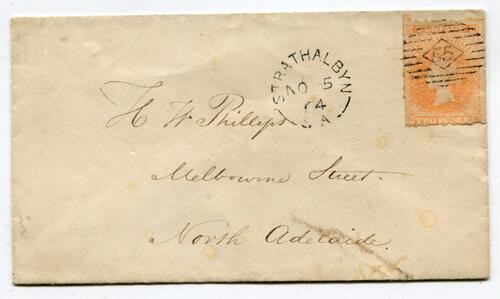 STRATHALBYN
NO 5
64
S.A
55
TWO PENCE
H W Phillips
Melbourne Street.
North Adelaide.